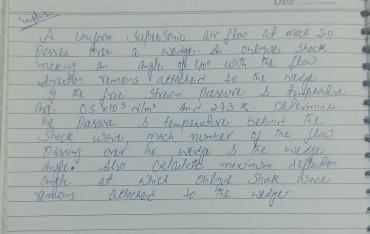 Date
A Uniform Supersonic air flow at mach 2.0
Passes over a wedge. An oblique shock
making an angle of 40° with the flow
direction remains attached to the wedge.
If the free stream Pressure & temperature
are 0.5 x 10⁵ N/m² and 273 K. Determine
the Pressure & temperature behind the
Shock wave, mach number of the flow
Passing over the wedge & the wedge
angle. Also Calculate maximum deflection
angle at which oblique Shock wave
remains attached to the wedge